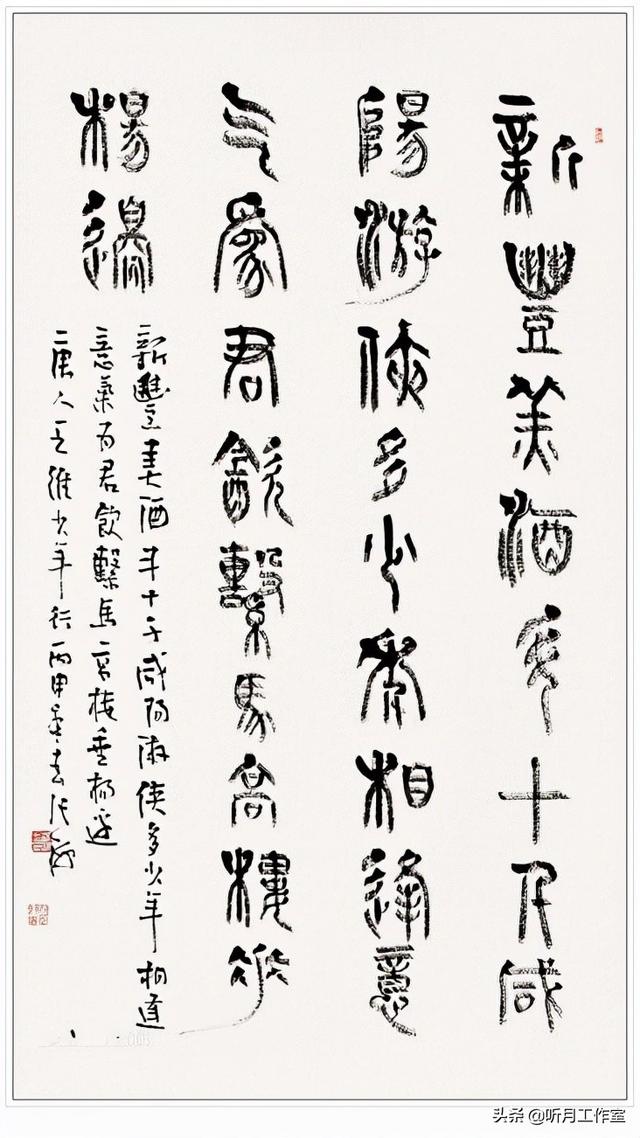 新豐美酒斗十千咸
陽游俠多少年相逢意
气爲君飲繫馬高樓垂
楊邊
新豐美酒斗十千咸阳游俠多少年相逢
意氣为君飲繫馬高楼垂杨边
唐人王維少年行丙申
头条 @听月工作室